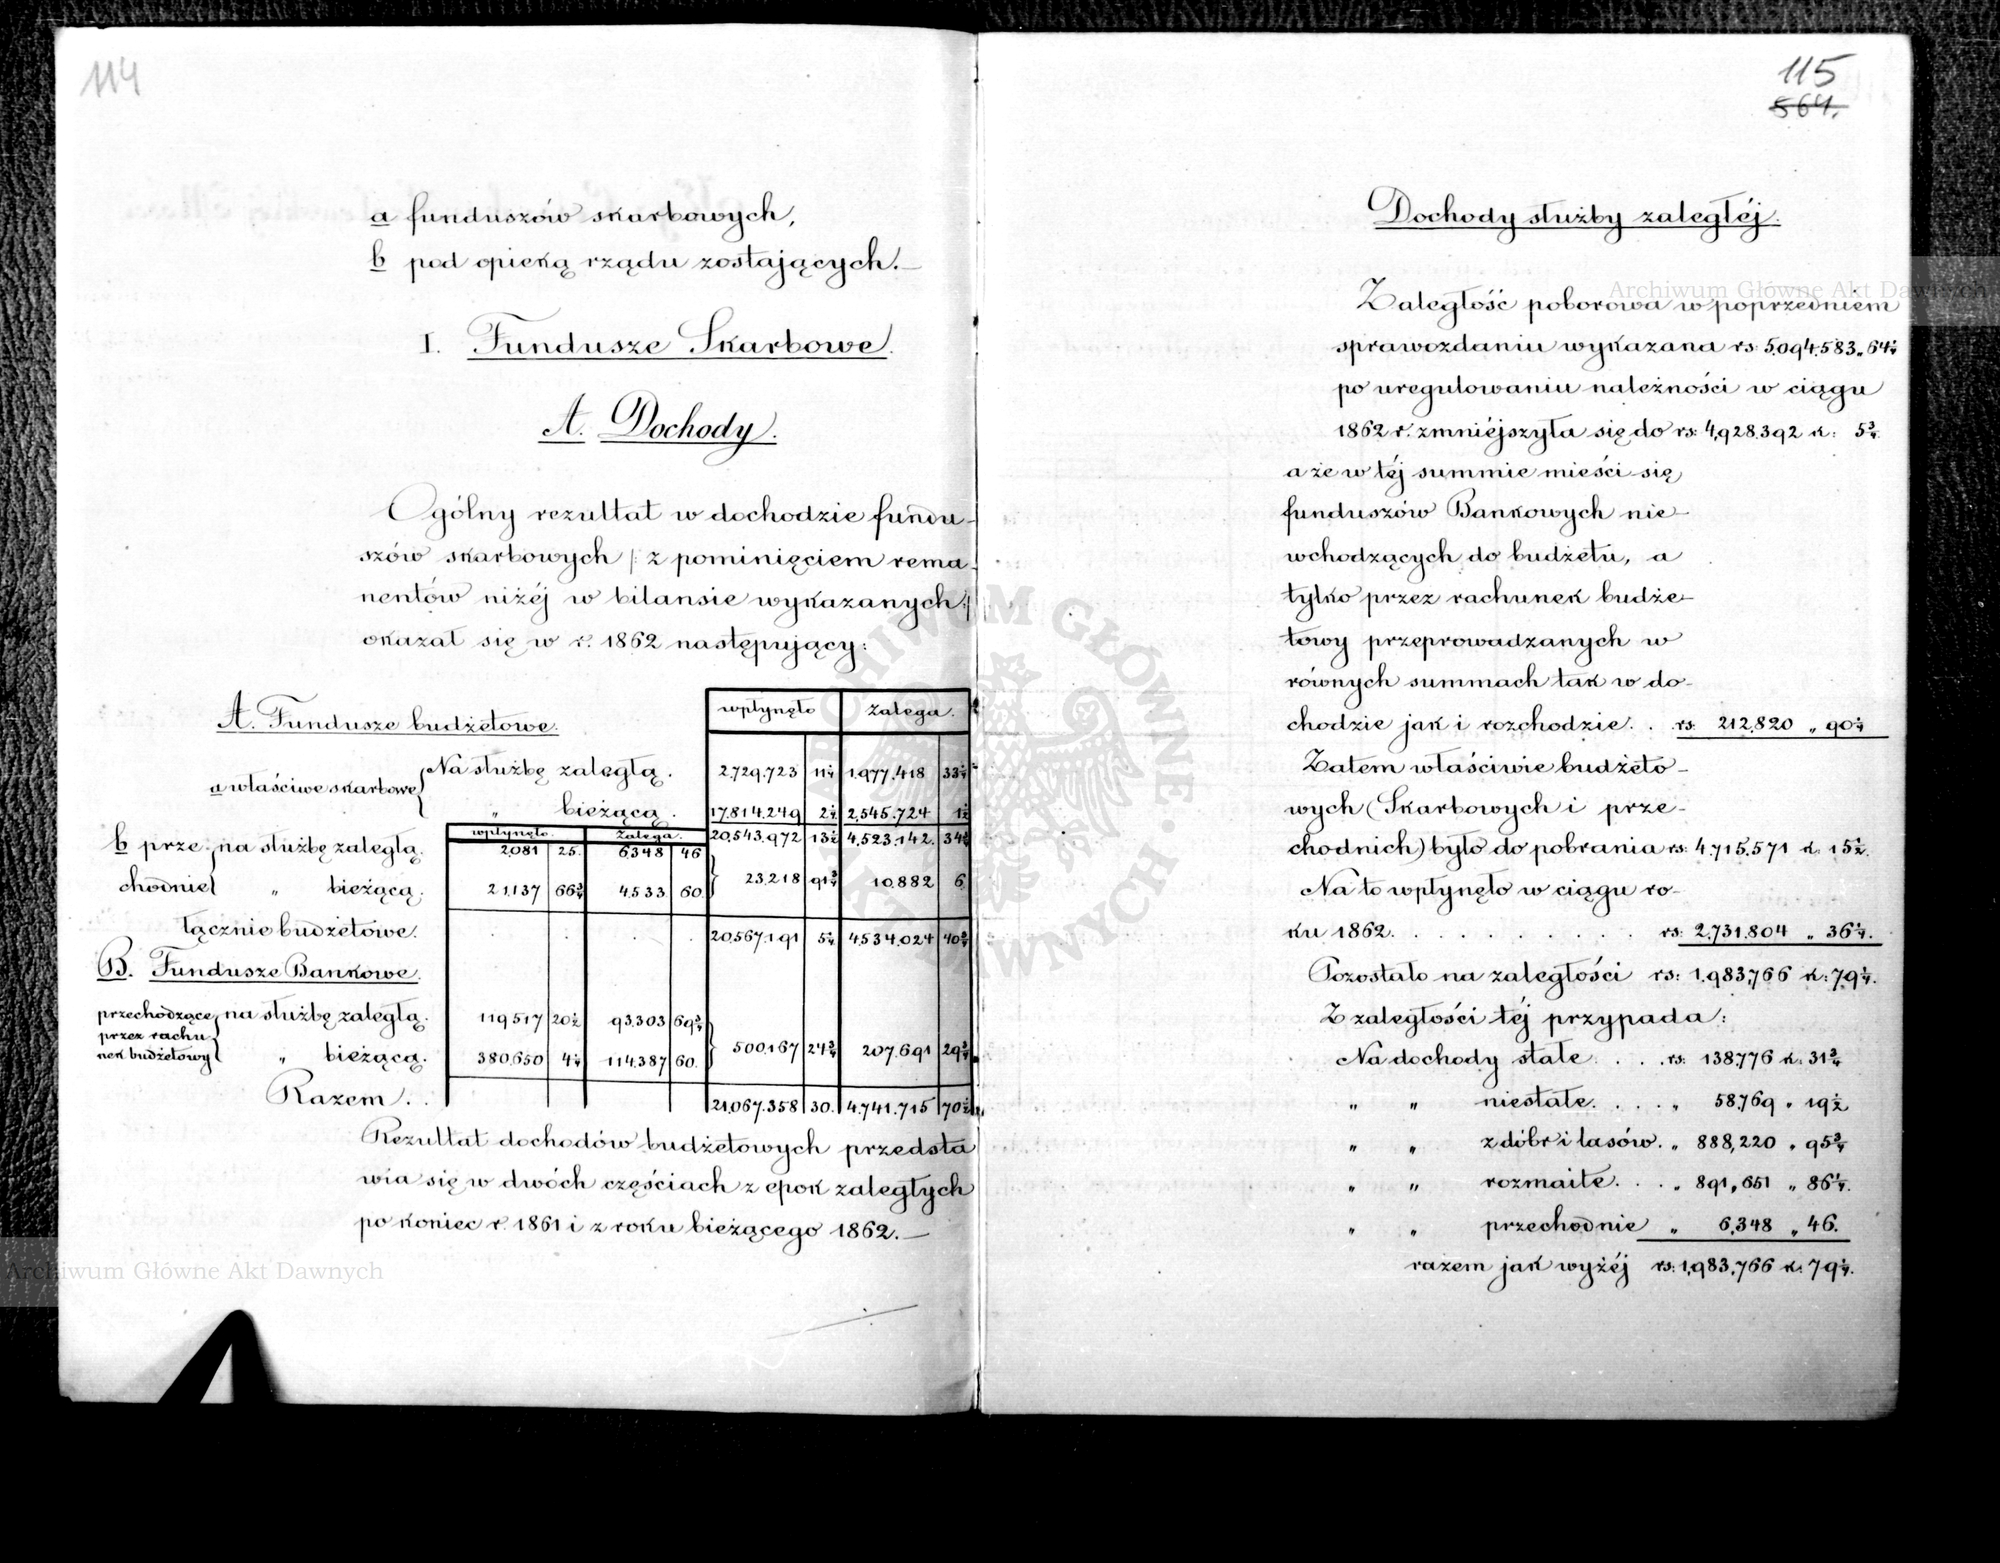 114
a funduszów skarbowych,
b pod opieką rządu zostających.—
I. Fundusze Skarbowe.
A. Dochody.
Ogólny rezultat w dochodzie fundu-
szów skarbowych /: z pominięciem rema-
nentów niżéj w bilansie wykazanych:/
okazał się w r. 1862 następujący:
wpłynęło zalega.
A. Fundusze budżetowe.
a właściwe skarbowe { Na służbę zaległą. 2,729,723 11¼ 1,977,418 33¼
„ bieżącą. 17,814,249 2¼ 2,545,724 1½
wpłynęło. zalega. 20,543,972 13½ 4,523,142. 34¾
b prze- na służbę zaległą. 2,081 25. 6,348 46
chodnie { „ bieżącą. 21,137 66¾ 4,533 60. } 23,218 91¾ 10,882 6
łącznie budżetowe. . . . . 20,567,191 5¼ 4,534,024 40¾
B. Fundusze Bankowe.
przechodzące na służbę zaległą. 119,517 20½ 93,303 69¾
przez rachu-
nek budżetowy { „ bieżącą. 380,650 4¼ 114,387 60. } 500,167 24¾ 207,691 29¾
Razem . . 21,067,358 30. 4,741,715 70½
Rezultat dochodów budżetowych przedsta
wia się w dwóch częściach z epok zaległych
po koniec r. 1861 i z roku bieżącego 1862.—
Archiwum Główne Akt Dawnych
115
564.
Dochody służby zaległéj.
Archiwum Główne Akt Dawnych
Zaległość poborowa w poprzedniem
sprawozdaniu wykazana rs: 5,094,583 „ 64¼
po uregulowaniu należności w ciągu
1862 r. zmniéjszyła się do rs: 4,928,392 k: 5¾.
a że w téj summie mieści się
funduszów Bankowych nie-
wchodzących do budżetu, a
tylko przez rachunek budże-
towy przeprowadzanych w
równych summach tak w do-
chodzie jak i rozchodzie. . rs: 212,820 „ 90¼
Zatem właściwie budżeto-
wych (Skarbowych i prze-
chodnich) było do pobrania rs: 4,715,571 k. 15½.
Na to wpłynęło w ciągu ro-
ku 1862. . . . . . . . . . rs: 2,731,804 „ 36¼.
Pozostało na zaległości rs: 1,983,766 k: 79¼.
Z zaległości téj przypada:
Na dochody stałe . . . rs: 138,776 k: 31¾
„ „ niestałe. . . . „ 58,769 „ 19½
„ „ z dóbr i lasów. „ 888,220 „ 95¾
„ „ rozmaite. . . „ 891,651 „ 86¼.
„ „ przechodnie „ 6,348 „ 46.
razem jak wyżéj rs: 1,983,766 k: 79¼.
ARCHIWUM GŁÓWNE AKT DAWNYCH